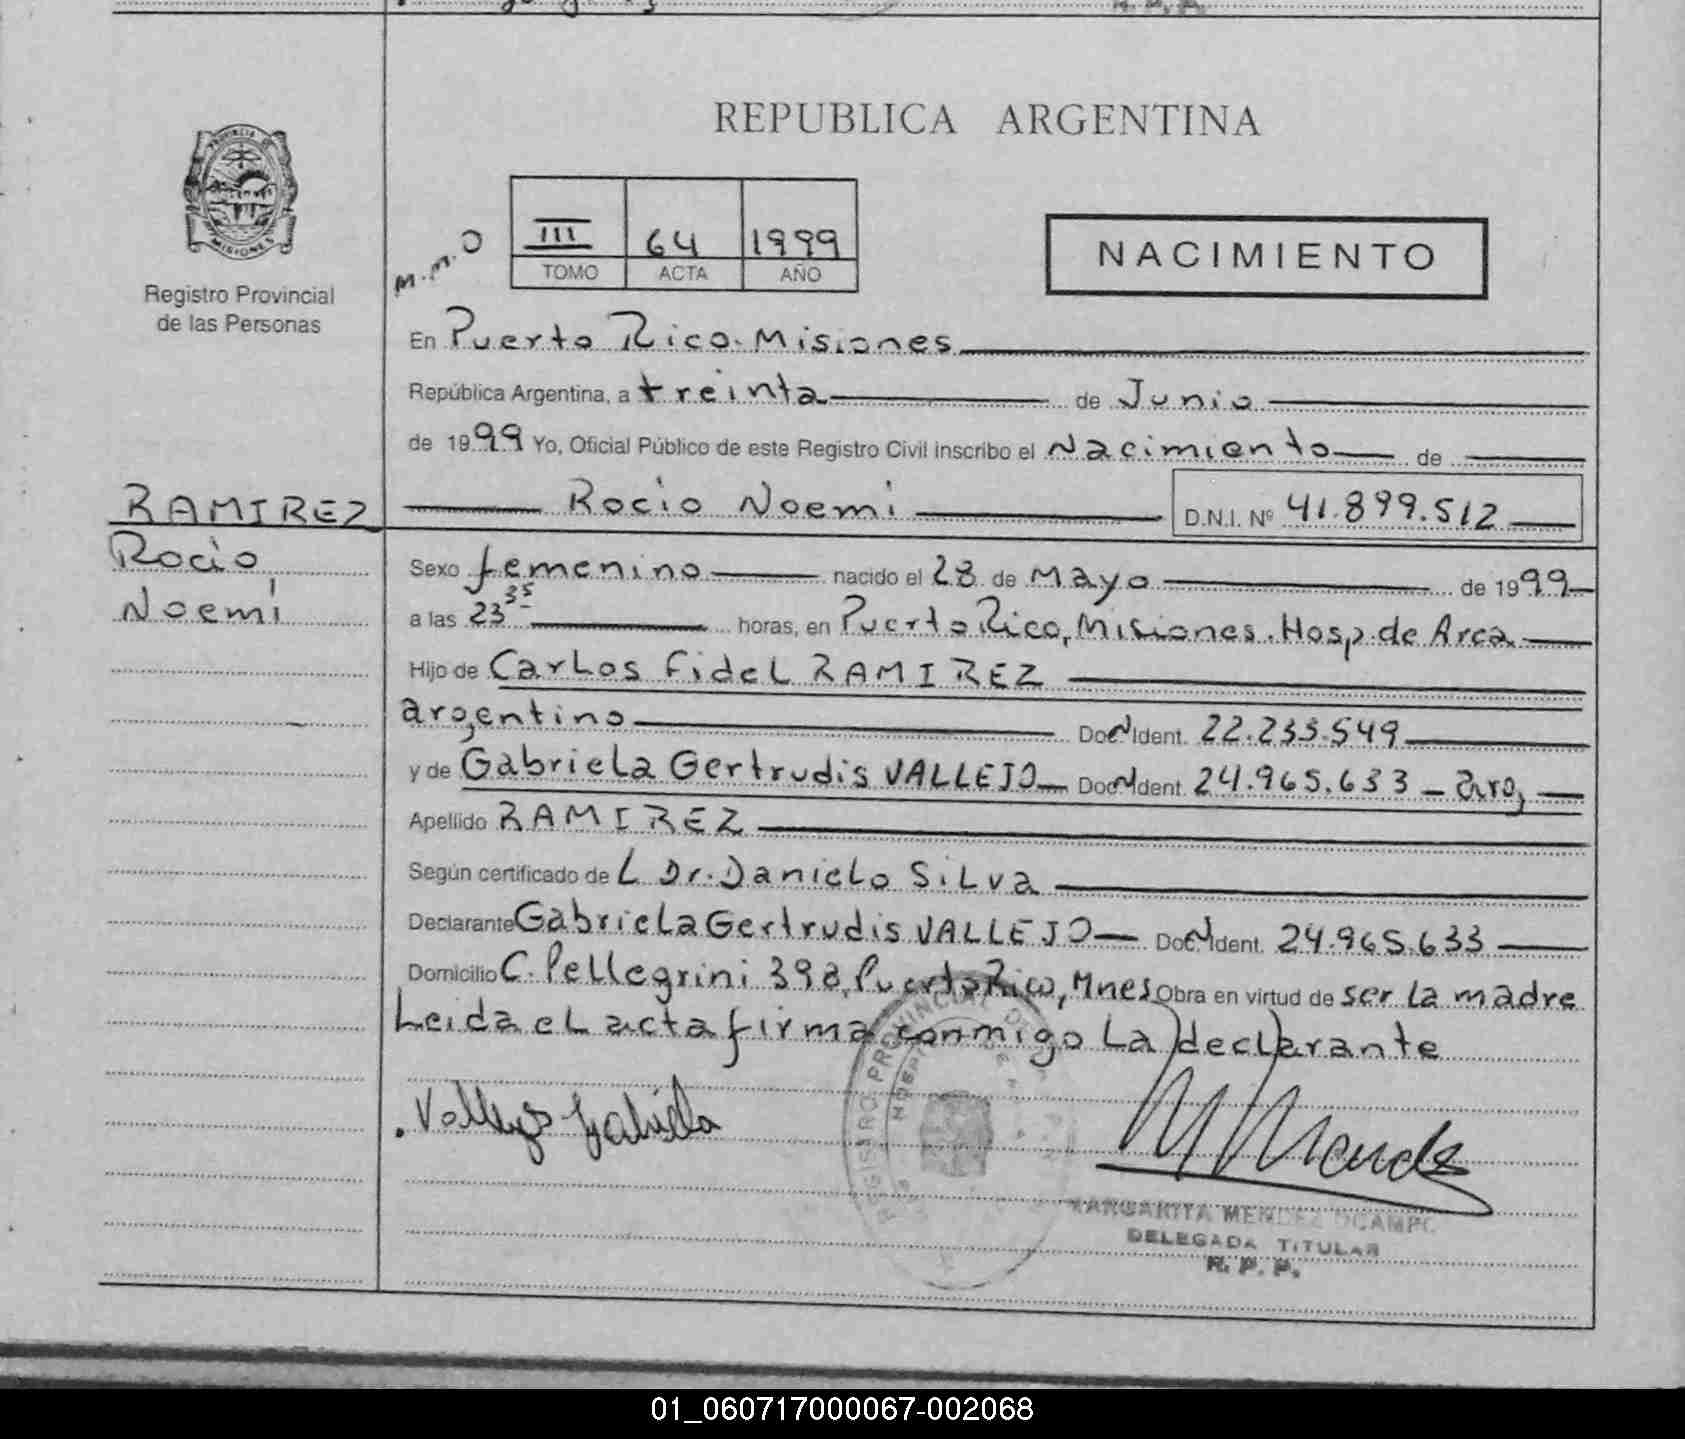 REPUBLICA ARGENTINA
PROVINCIA DE
MISIONES
Registro Provincial
de las Personas
m.m.o
III 64 1999
TOMO ACTA AÑO
NACIMIENTO
En Puerto Rico. Misiones
República Argentina, a treinta de Junio
de 1999 Yo, Oficial Público de este Registro Civil inscribo el Nacimiento de
RAMIREZ
Rocio Noemi D.N.I. Nº 41.899.512
Rocio,
Noemí
Sexo femenino nacido el 28 de Mayo de 1999
a las 23 35 horas, en Puerto Rico, Misiones. Hosp. de Area
Hijo de Carlos Fidel RAMIREZ
argentino Doc. N Ident. 22.233.549
y de Gabriela Gertrudis VALLEJO Doc. N Ident. 24.965.633 - arg,
Apellido RAMIREZ
Según certificado de L Dr. Danielo Silva
Declarante Gabriela Gertrudis VALLEJO Doc. N Ident. 24.965.633
Domicilio C. Pellegrini 398, Puerto Rico, Mnes Obra en virtud de ser la madre
Leida el acta firma conmigo la declarante
Vallejo Gabriela
M Mendez
REGISTRO PROVINCIAL DE
MARGARITA MENDEZ OCAMPO
DELEGADA TITULAR
R. P. P.
01_060717000067-002068